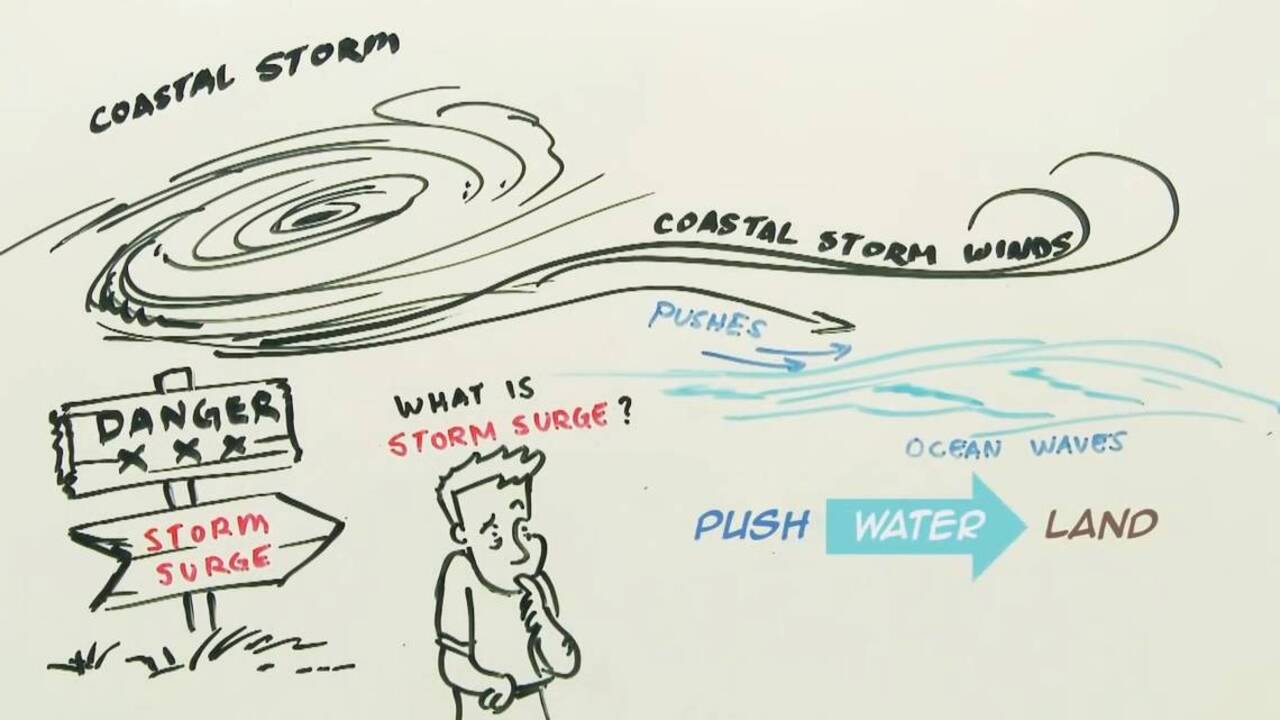 COASTAL STORM
COASTAL STORM WINDS
PUSHES
OCEAN WAVES
DANGER
X X X
STORM
SURGE
WHAT IS
STORM SURGE?
PUSH WATER LAND